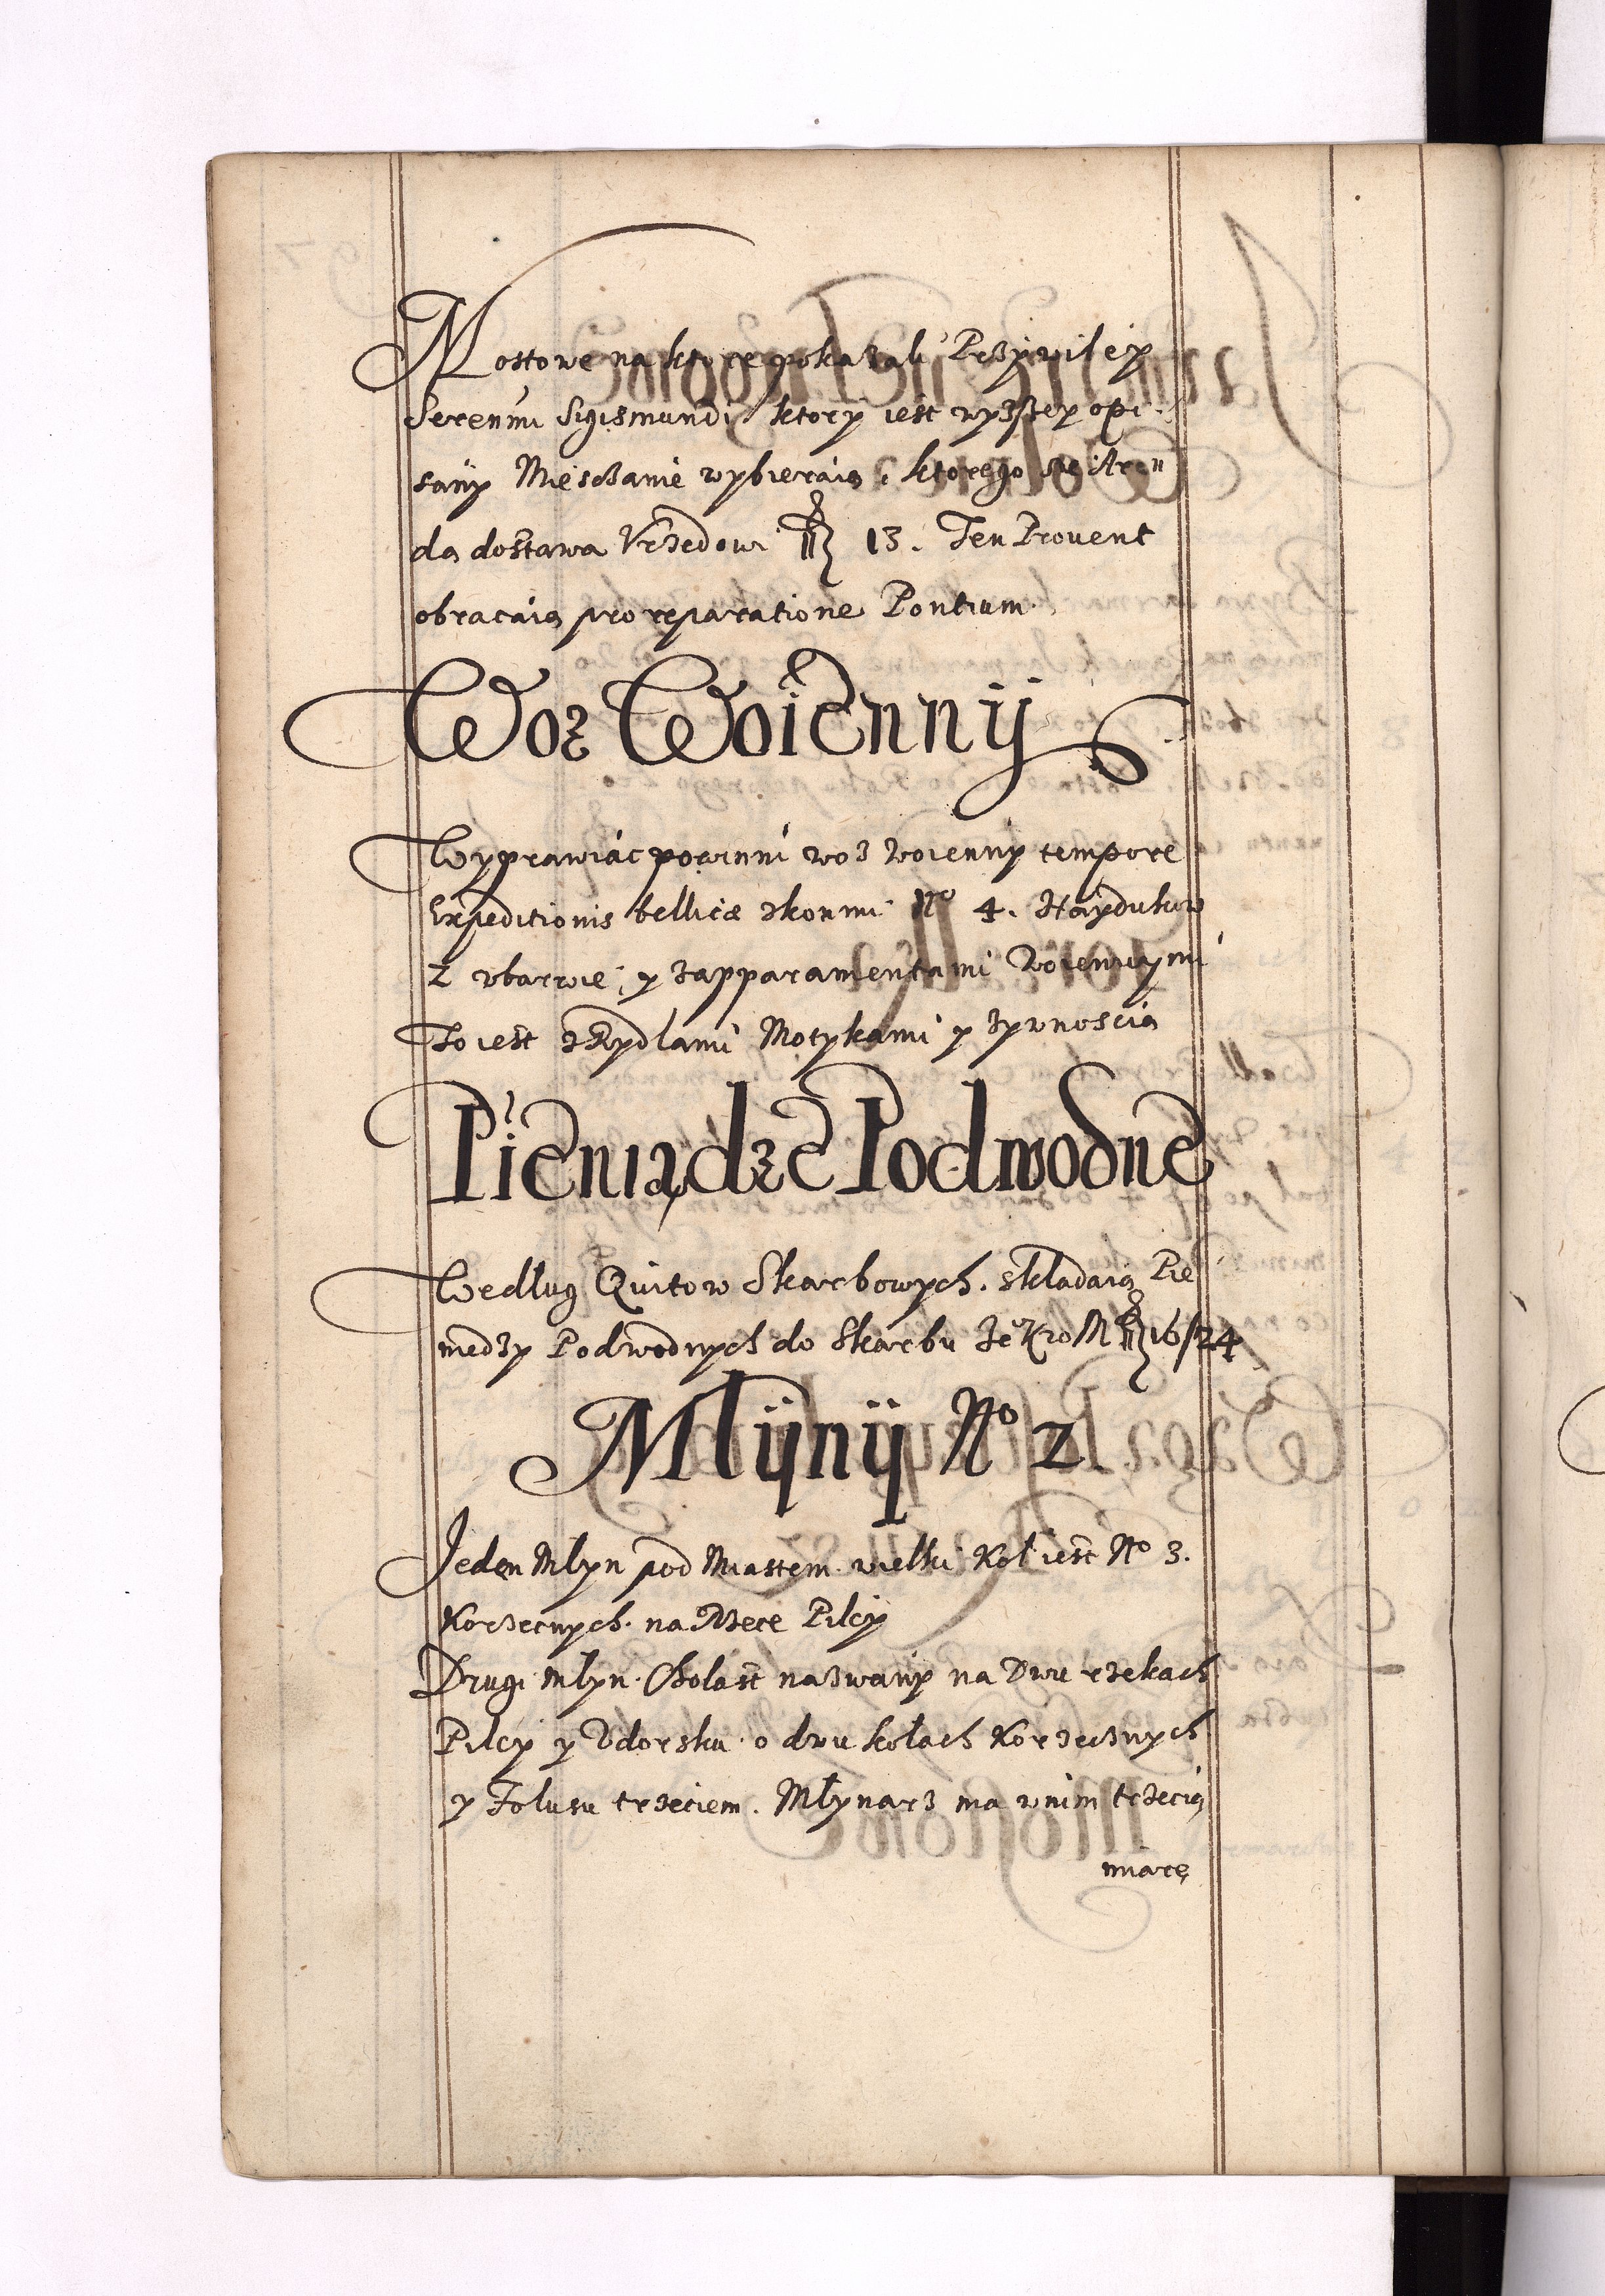 Mostowe na ktore pokazali Przywiley
Serenmi Sigismundi ktory iest wyzszey opi-
sany Mieszczanie wybieraią, ktorego
da dostawa Vrzedowi fl 13. Ten Provent
obracaią pro reparatione Pontium.
Woz Woienny
Wyprawiac powinni woz woienny tempore
Expeditionis bellicæ zkonmi No 4. Haydukow
2 wbarwie, y zapparamentami Woiennymi
To iest zRydlami Motykami y zywnoscią
Pieniądze Podwodne
Wedlug Quitow Skarbowych. skladaią Pie
niedzy Podwodnych do Skarbu fl 16/24
Mlyny No 2
Jeden Mlyn pod Miastem wielki Koł iest No 3.
Korzecnych. na Rzece Pilcy
Drugi Mlyn. nazwany na Dwu rzekach
Pilcy y Vdorsku o dwu kołach Korzecznych
y Folusu trzeciem. Młynarz ma wnim trzecią
miarę